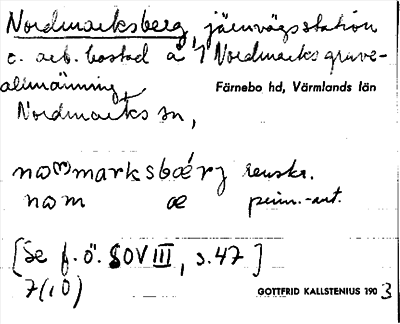 Nordmarksberg, järnvägsstation
o. arb. bostad å 1/4 Nordmarks gruve-
allmänning
Färnebo hd, Värmlands län
Nordmarks sn,
renskr.
[Se f. ö. SOV III, s. 47]
7(10)
GOTTFRID KALLSTENIUS 1903